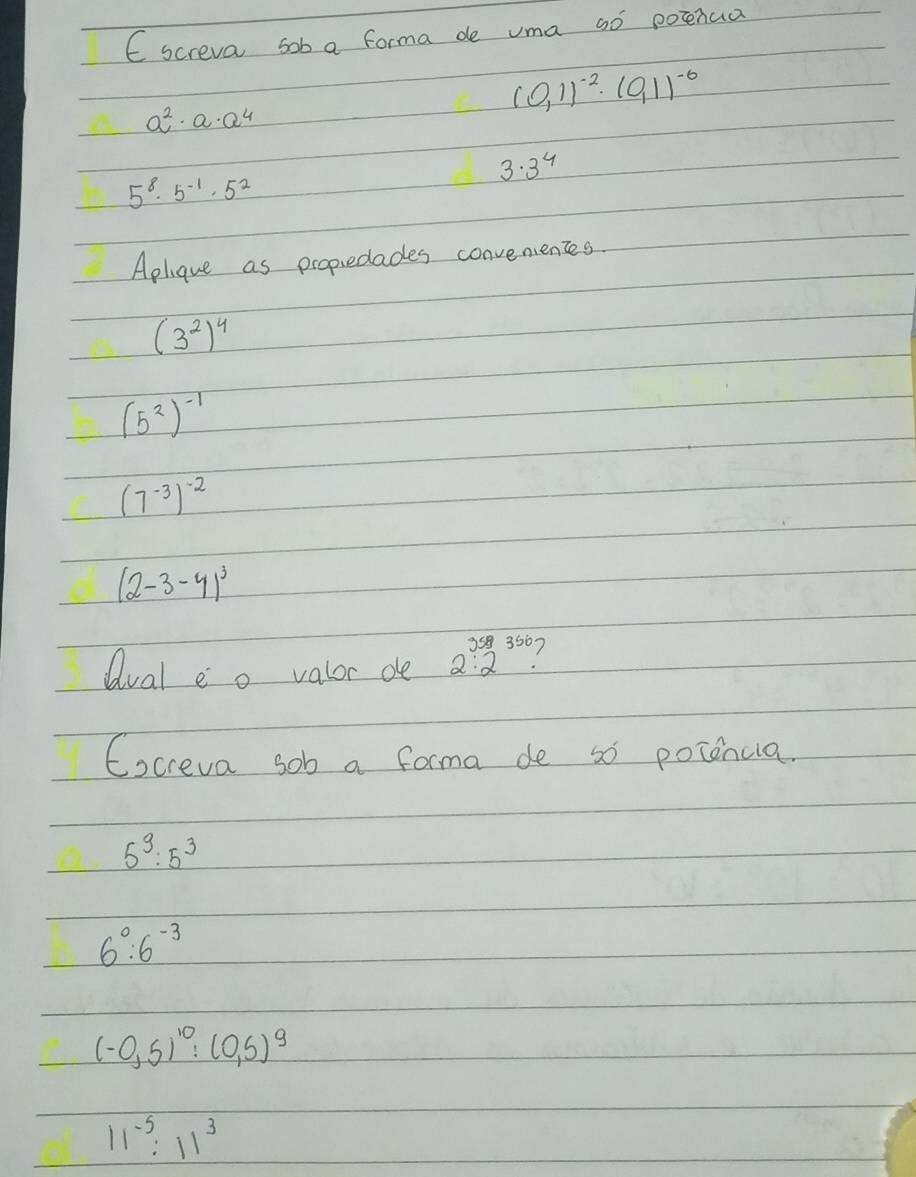 1 Escreva sob a forma de uma só potência
a a²·a·a⁴
c (0,1)⁻²·(0,1)⁻⁶
b 5⁸·5⁻¹·5²
d 3·3⁴
2 Aplique as propiedades convenientes.
a (3²)⁴
b (5²)⁻¹
c (7⁻³)⁻²
d (2-3-4)³
3 Qual é o valor de 2³⁵⁸:2³⁵⁶?
4 Escreva sob a forma de só potência.
a. 5⁹:5³
b 6⁰:6⁻³
c. (-0,5)¹⁰:(0,5)⁹
d. 11⁻⁵:11³